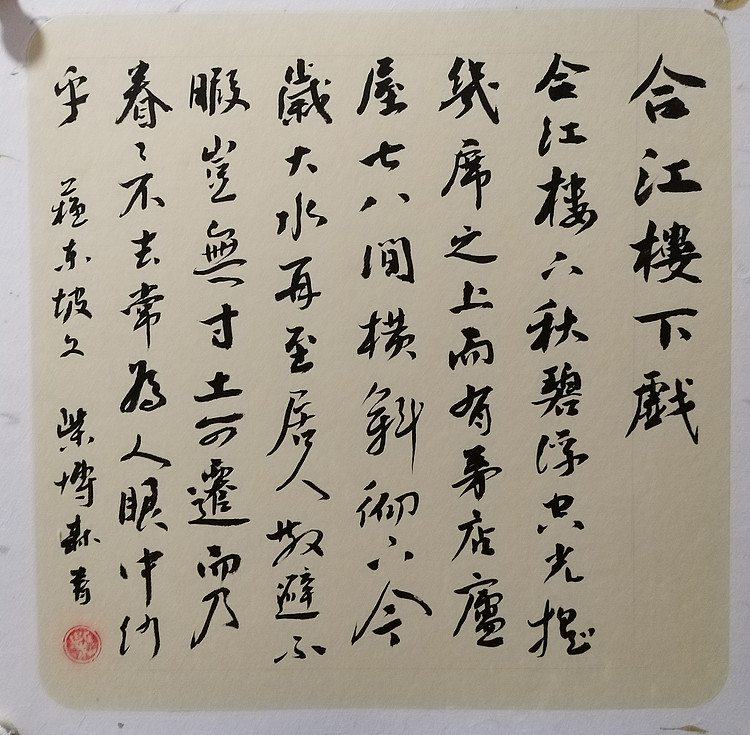 合江樓下戲
合江楼下秋碧浮空光摇
幾席之上而有茅店廬
屋七八間横斜砌下今
歲大水再至居人散避不
暇豈無寸土可遷而乃
眷々不去常為人眼中沙
乎 蘇东坡文 柴博書